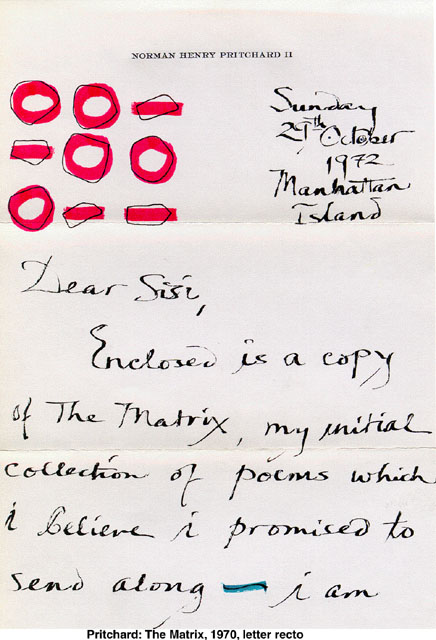 NORMAN HENRY PRITCHARD II
Sunday
29th October
1972
Manhattan
Island
Dear Sisi,
Enclosed is a copy
of The Matrix, my initial
collection of poems which
i believe i promised to
send along — i am
Pritchard: The Matrix, 1970, letter recto